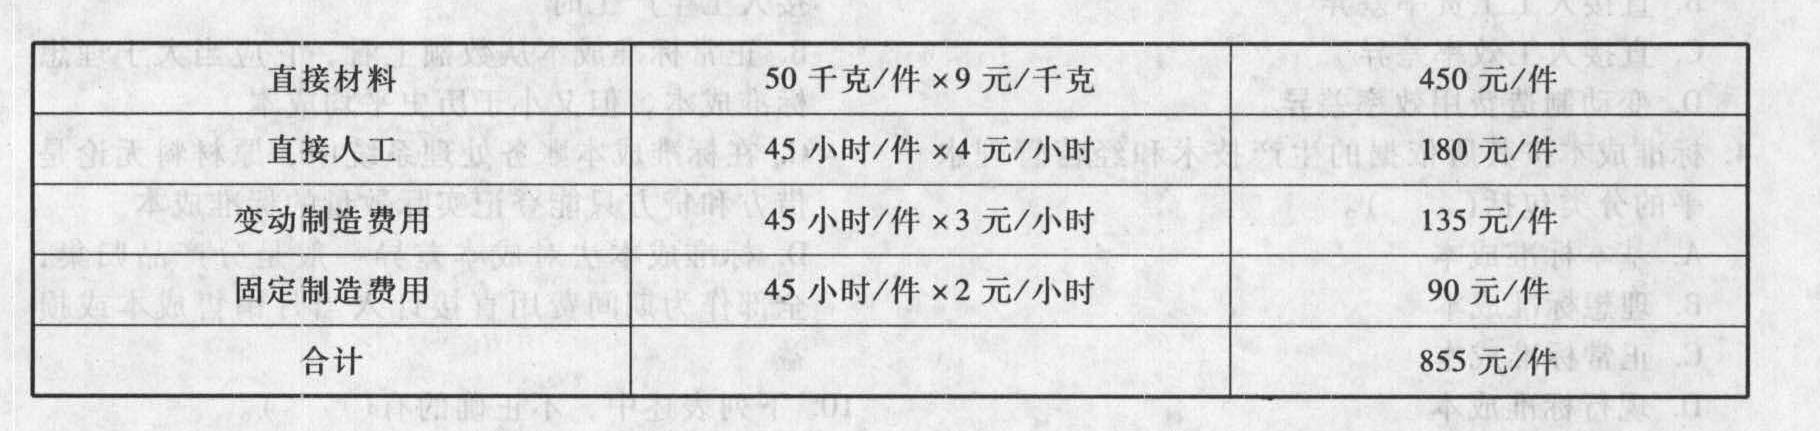 直接材料 50 千克/件 ×9 元/千克 450 元/件
直接人工 45 小时/件 ×4 元/小时 180 元/件
变动制造费用 45 小时/件 ×3 元/小时 135 元/件
固定制造费用 45 小时/件 ×2 元/小时 90 元/件
合计 855 元/件